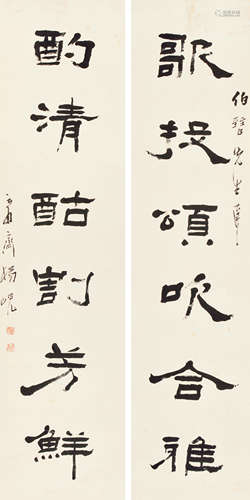 歌投頌吹合雅
伯 先生
酌清酤割芳鮮
庸齋楊峴